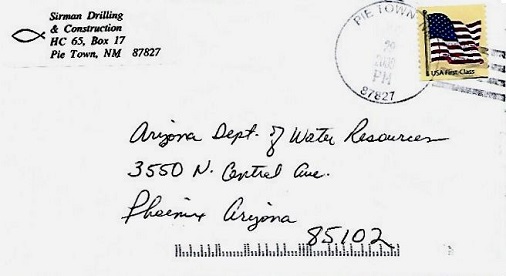 Sirman Drilling
& Construction
HC 65, Box 17
Pie Town, NM 87827
PIE TOWN
PM
87827
USA First-Class
Arizona Dept. of Water Resources
3550 N. Central Ave.
Phoenix Arizona
85102